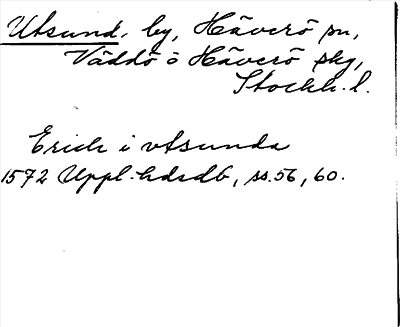 Utsund, by, Häverö sn,
Väddö o Häverö skg,
Stockh. l.
Erich i vtsunda
1572 Uppl. hdsdb, ss. 56, 60.